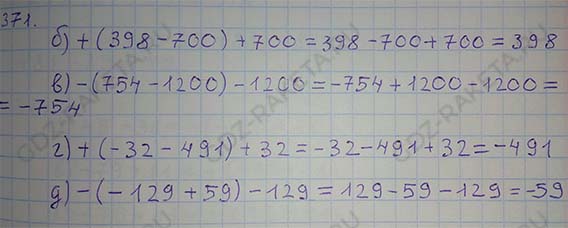 371.
б) + (398 - 700) + 700 = 398 - 700 + 700 = 398
в) - (754 - 1200) - 1200 = -754 + 1200 - 1200 =
= -754
г) + (-32 - 491) + 32 = -32 - 491 + 32 = -491
д) - (-129 + 59) - 129 = 129 - 59 - 129 = -59
GDZ-RAKETA.RU
GDZ-RAKETA.RU